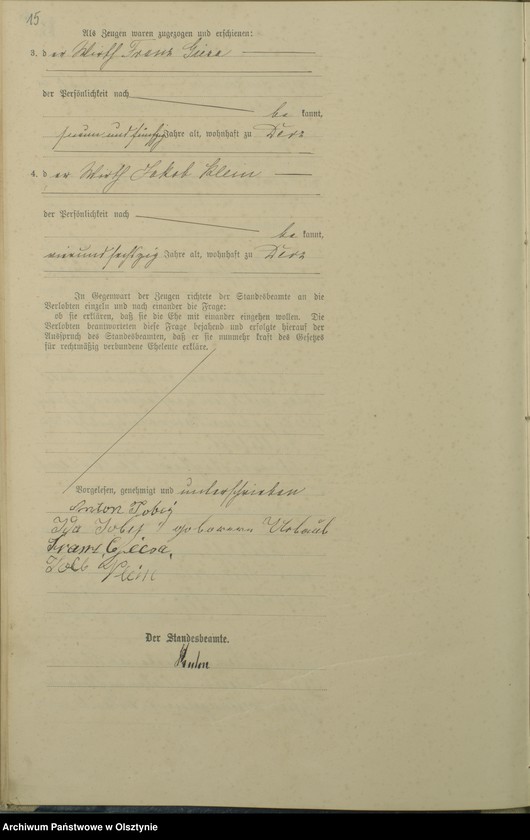 15
Als Zeugen waren zugezogen und erschienen:
3. d er Wirth Franz Giesa
der Persönlichkeit nach
be kannt,
neun und fünfzig Jahre alt, wohnhaft zu Derz
4. d er Wirth Jakob Klein
der Persönlichkeit nach
be kannt,
vierundsechzig Jahre alt, wohnhaft zu Derz
In Gegenwart der Zeugen richtete der Standesbeamte an die
Verlobten einzeln und nach einander die Frage:
ob sie erklären, daß sie die Ehe mit einander eingehen wollen. Die
Verlobten beantworteten diese Frage bejahend und erfolgte hierauf der
Ausspruch des Standesbeamten, daß er sie nunmehr kraft des Gesetzes
für rechtmäßig verbundene Eheleute erkläre.
Vorgelesen, genehmigt und unterschrieben
Anton
geborene
Franz Giesa,
Klein
Der Standesbeamte.
Archiwum Państwowe w Olsztynie